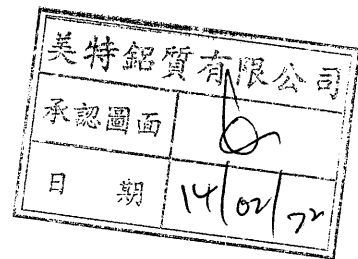 美特鋁質有限公司
承認圖面
日期 14/02/72